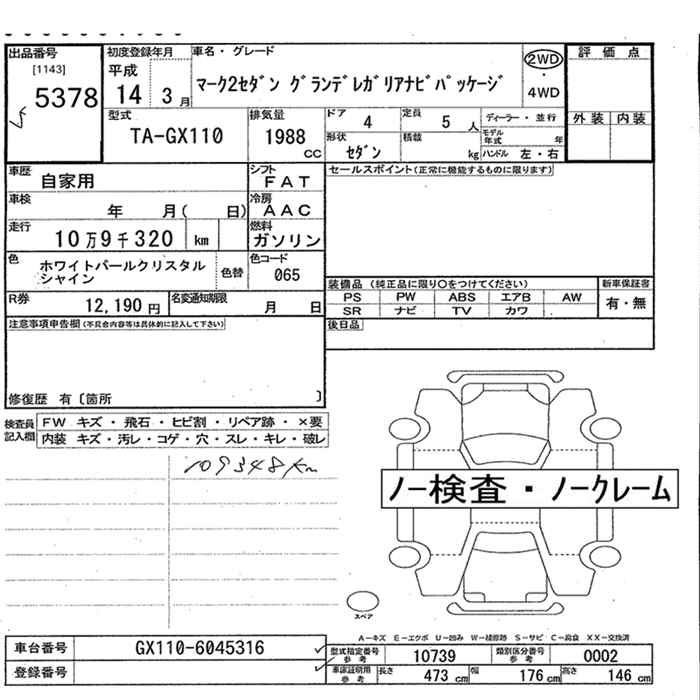 出品番号
[1143]
5378
初度登録年月
平成
14 3月
車名・グレード
マーク2セダン グランデレガリアナビパッケージ
2WD
・
4WD
評価点
外装 内装
型式
TA-GX110
排気量
1988
CC
ドア
4
定員
5 人
ディーラー・並行
形状
セダン
積載
kg
モデル年式 年
ハンドル 左・右
車歴
自家用
シフト
FAT
車検
年 月( 日)
冷房
AAC
走行
10万9千320 km
燃料
ガソリン
色
ホワイトパールクリスタル
シャイン
色替
色コード
065
R券
12,190 円
名変通知期限
月 日
セールスポイント(正常に機能するものに限ります)
装備品 (純正品に限り○をつけてください)
PS PW ABS エアB AW
SR ナビ TV カワ
新車保証書
有・無
後日品
注意事項申告欄(不具合内容等は具体的に記入して下さい)
修復歴 有〔箇所 〕
検査員
記入欄
FW キズ・飛石・ヒビ割・リペア跡・×要
内装 キズ・汚レ・コゲ・穴・スレ・キレ・破レ
109348Km
ノー検査・ノークレーム
スペア
A-キズ E-エクボ U-凹み W-補修跡 S-サビ C-腐食 XX-交換済
車台番号
GX110-6045316
登録番号
型式指定番号
参考
10739
類別区分番号
参考
0002
車庫証明用
参考
長さ 473 cm 幅 176 cm 高さ 146 cm